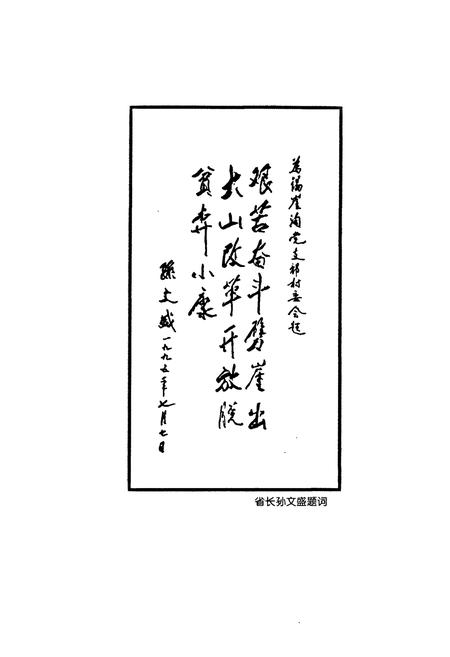 為锡崖沟党支部村委会题
艰苦奋斗劈崖出
大山改革开放脱
贫奔小康
孫文盛 一九九五年七月七日
省长孙文盛题词